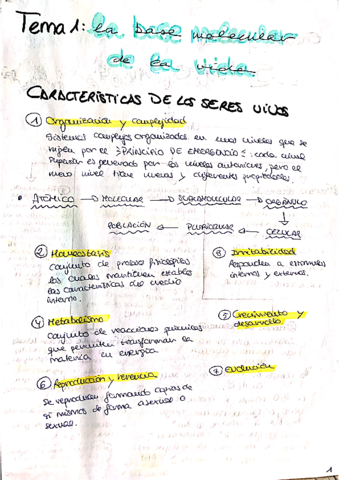 Tema 1: la base molecular
de la vida.
CARACTERÍSTICAS DE LOS SERES VIVOS
① Organización y complejidad
Sistemas complejos organizados en unos niveles que se
rigen por el "PRINCIPIO DE EMERGENCIA": cada nivel
superior es generado por los niveles anteriores, pero el
nuevo nivel tiene nuevas y diferentes propiedades
• ATÓMICO → MOLECULAR → SUPRAMOLECULAR → ORGÁNULO
POBLACIÓN ← PLURICELULAR ← CELULAR
② Homeostasis
conjunto de procesos fisiológicos
los cuales mantienen estables
las características del medio
interno.
③ Irritabilidad
Responden a estímulos
internos y externos.
④ Metabolismo
conjunto de reacciones químicas
que permiten transforman la
materia en energía.
⑤ Crecimiento y
desarrollo
⑥ Reproducción y herencia
Se reproducen formando copias de
si mismos de forma asexual o
sexual.
⑦ Evolución
1